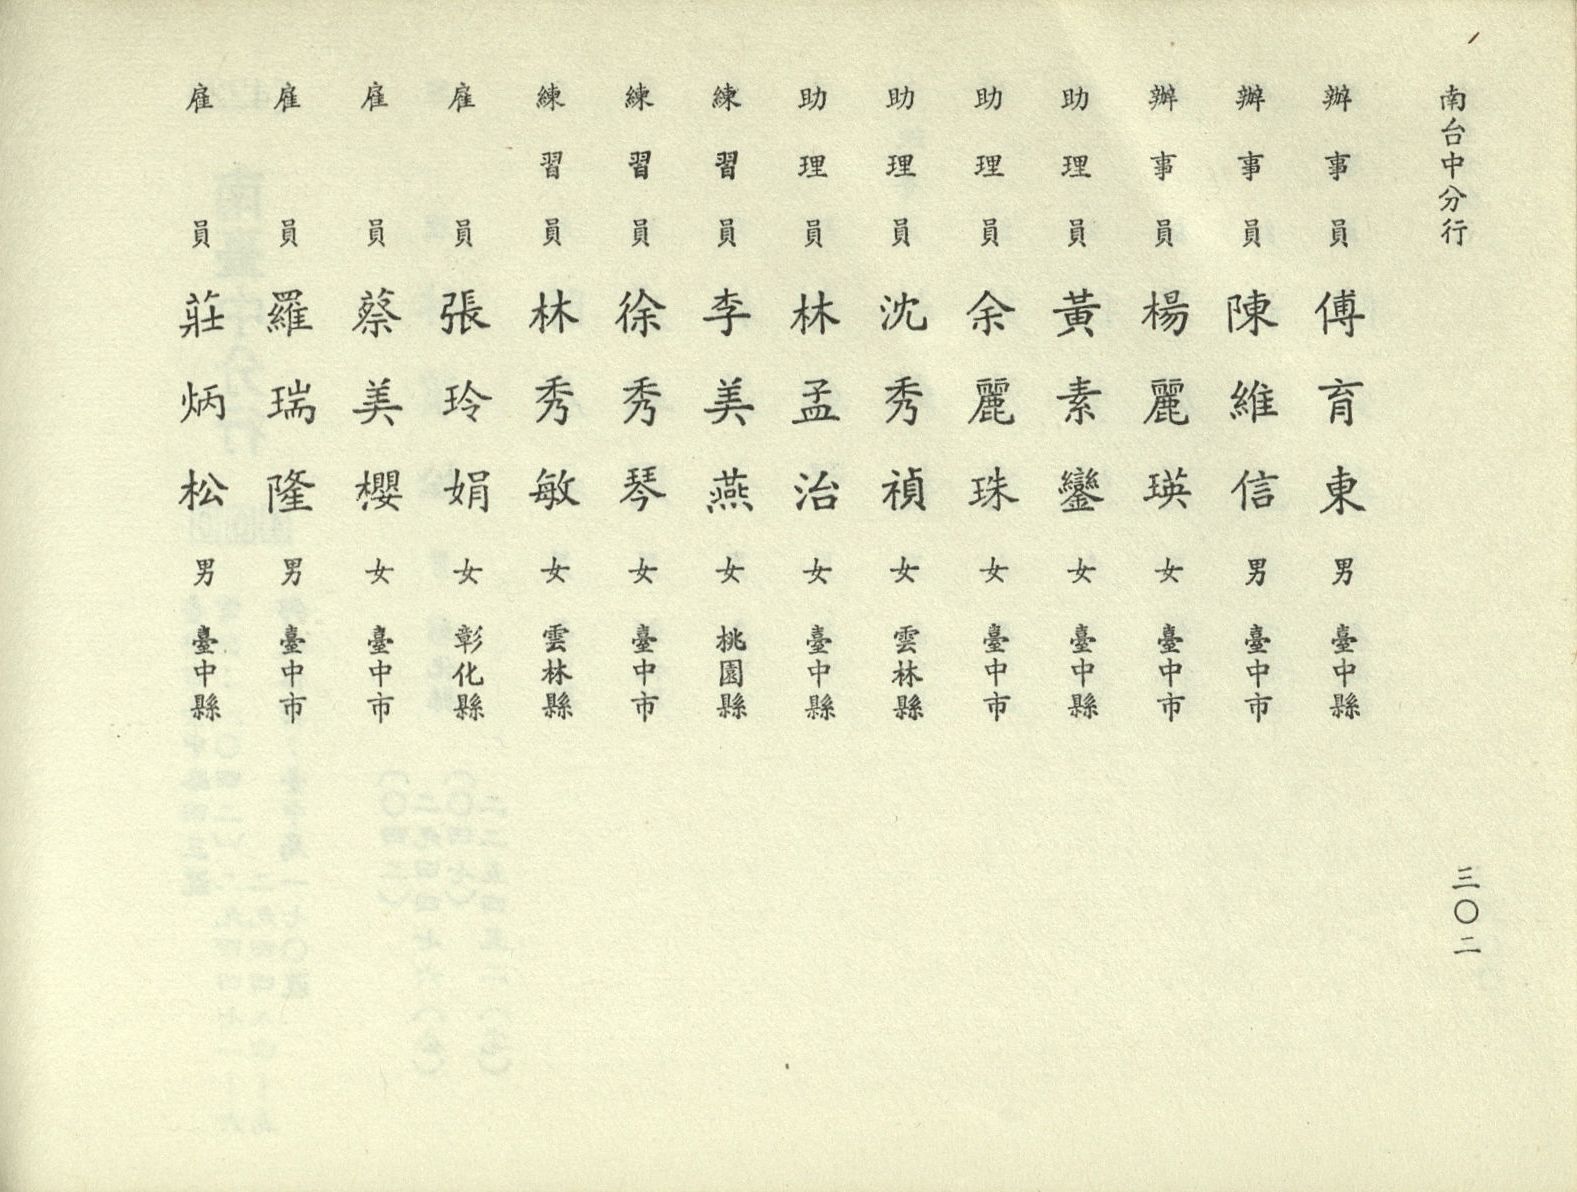 南台中分行
三〇二
辦事員 傅育東 男 臺中縣
辦事員 陳維信 男 臺中市
辦事員 楊麗瑛 女 臺中市
助理員 黃素鑾 女 臺中縣
助理員 余麗珠 女 臺中市
助理員 沈秀禎 女 雲林縣
助理員 林孟治 女 臺中縣
練習員 李美燕 女 桃園縣
練習員 徐秀琴 女 臺中市
練習員 林秀敏 女 雲林縣
雇員 張玲娟 女 彰化縣
雇員 蔡美櫻 女 臺中市
雇員 羅瑞隆 男 臺中市
雇員 莊炳松 男 臺中縣